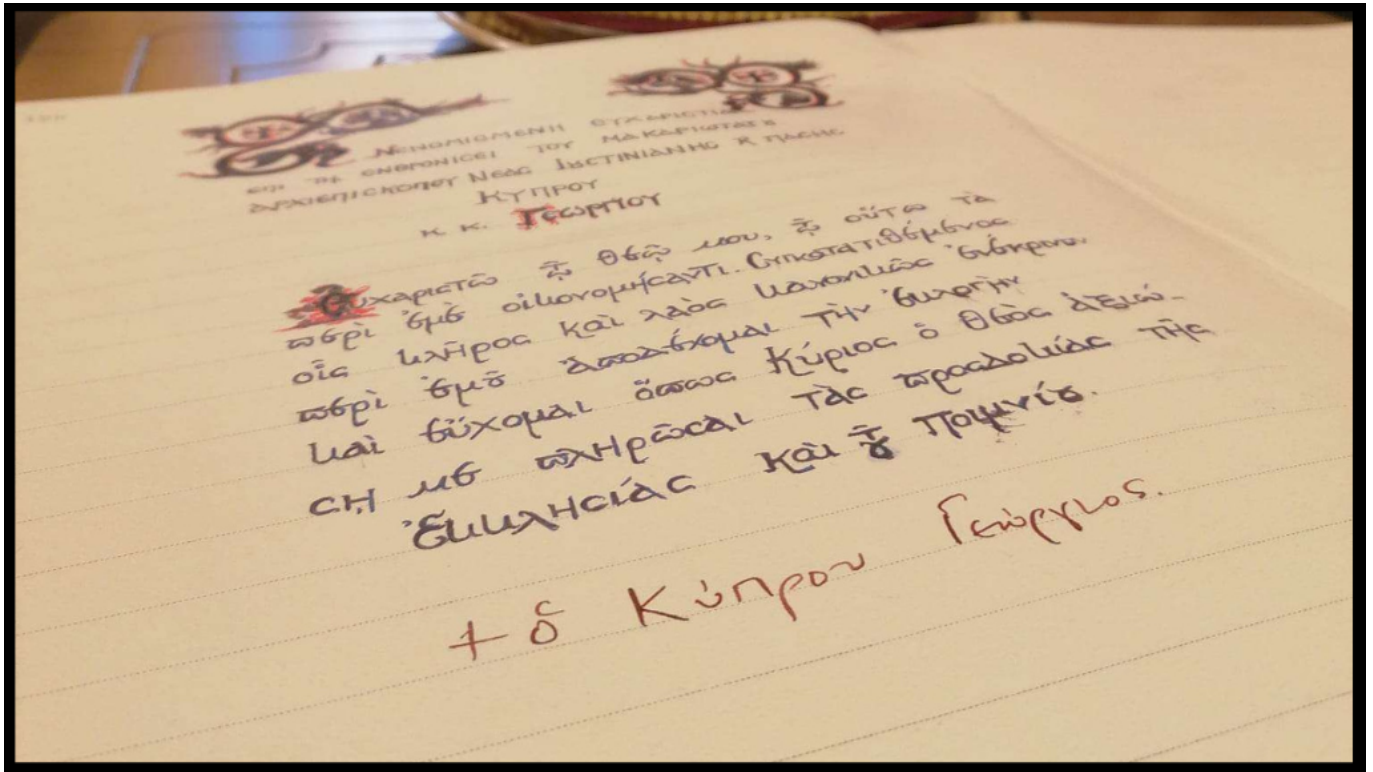 ΝΕΝΟΜΙΣΜΕΝΗ ΕΥΧΑΡΙΣΤΙΑ
ΕΠΙ ΤΗ ΕΝΘΡΟΝΙΣΕΙ ΤΟΥ ΜΑΚΑΡΙΩΤΑΤΟΥ
ΑΡΧΙΕΠΙΣΚΟΠΟΥ ΝΕΑΣ ΙΟΥΣΤΙΝΙΑΝΗΣ Κ ΠΑΣΗΣ
ΚΥΠΡΟΥ
Κ. Κ. ΓΕΩΡΓΙΟΥ
Εὐχαριστῶ τῷ Θεῷ μου, τῷ οὕτω τὰ
περὶ ἐμὲ οἰκονομήσαντι. Συγκατατιθέμενος
οἷς κλῆρος καὶ λαὸς κανονικῶς ἐνέκρινε
περὶ ἐμοῦ ἀποδέχομαι τὴν ἐκλογὴν
καὶ εὔχομαι ὅπως Κύριος ὁ Θεὸς ἀξιώ-
σῃ με πληρῶσαι τὰς προσδοκίας τῆς
Ἐκκλησίας καὶ τοῦ Ποιμνίου.
+ ὁ Κύπρου Γεώργιος.